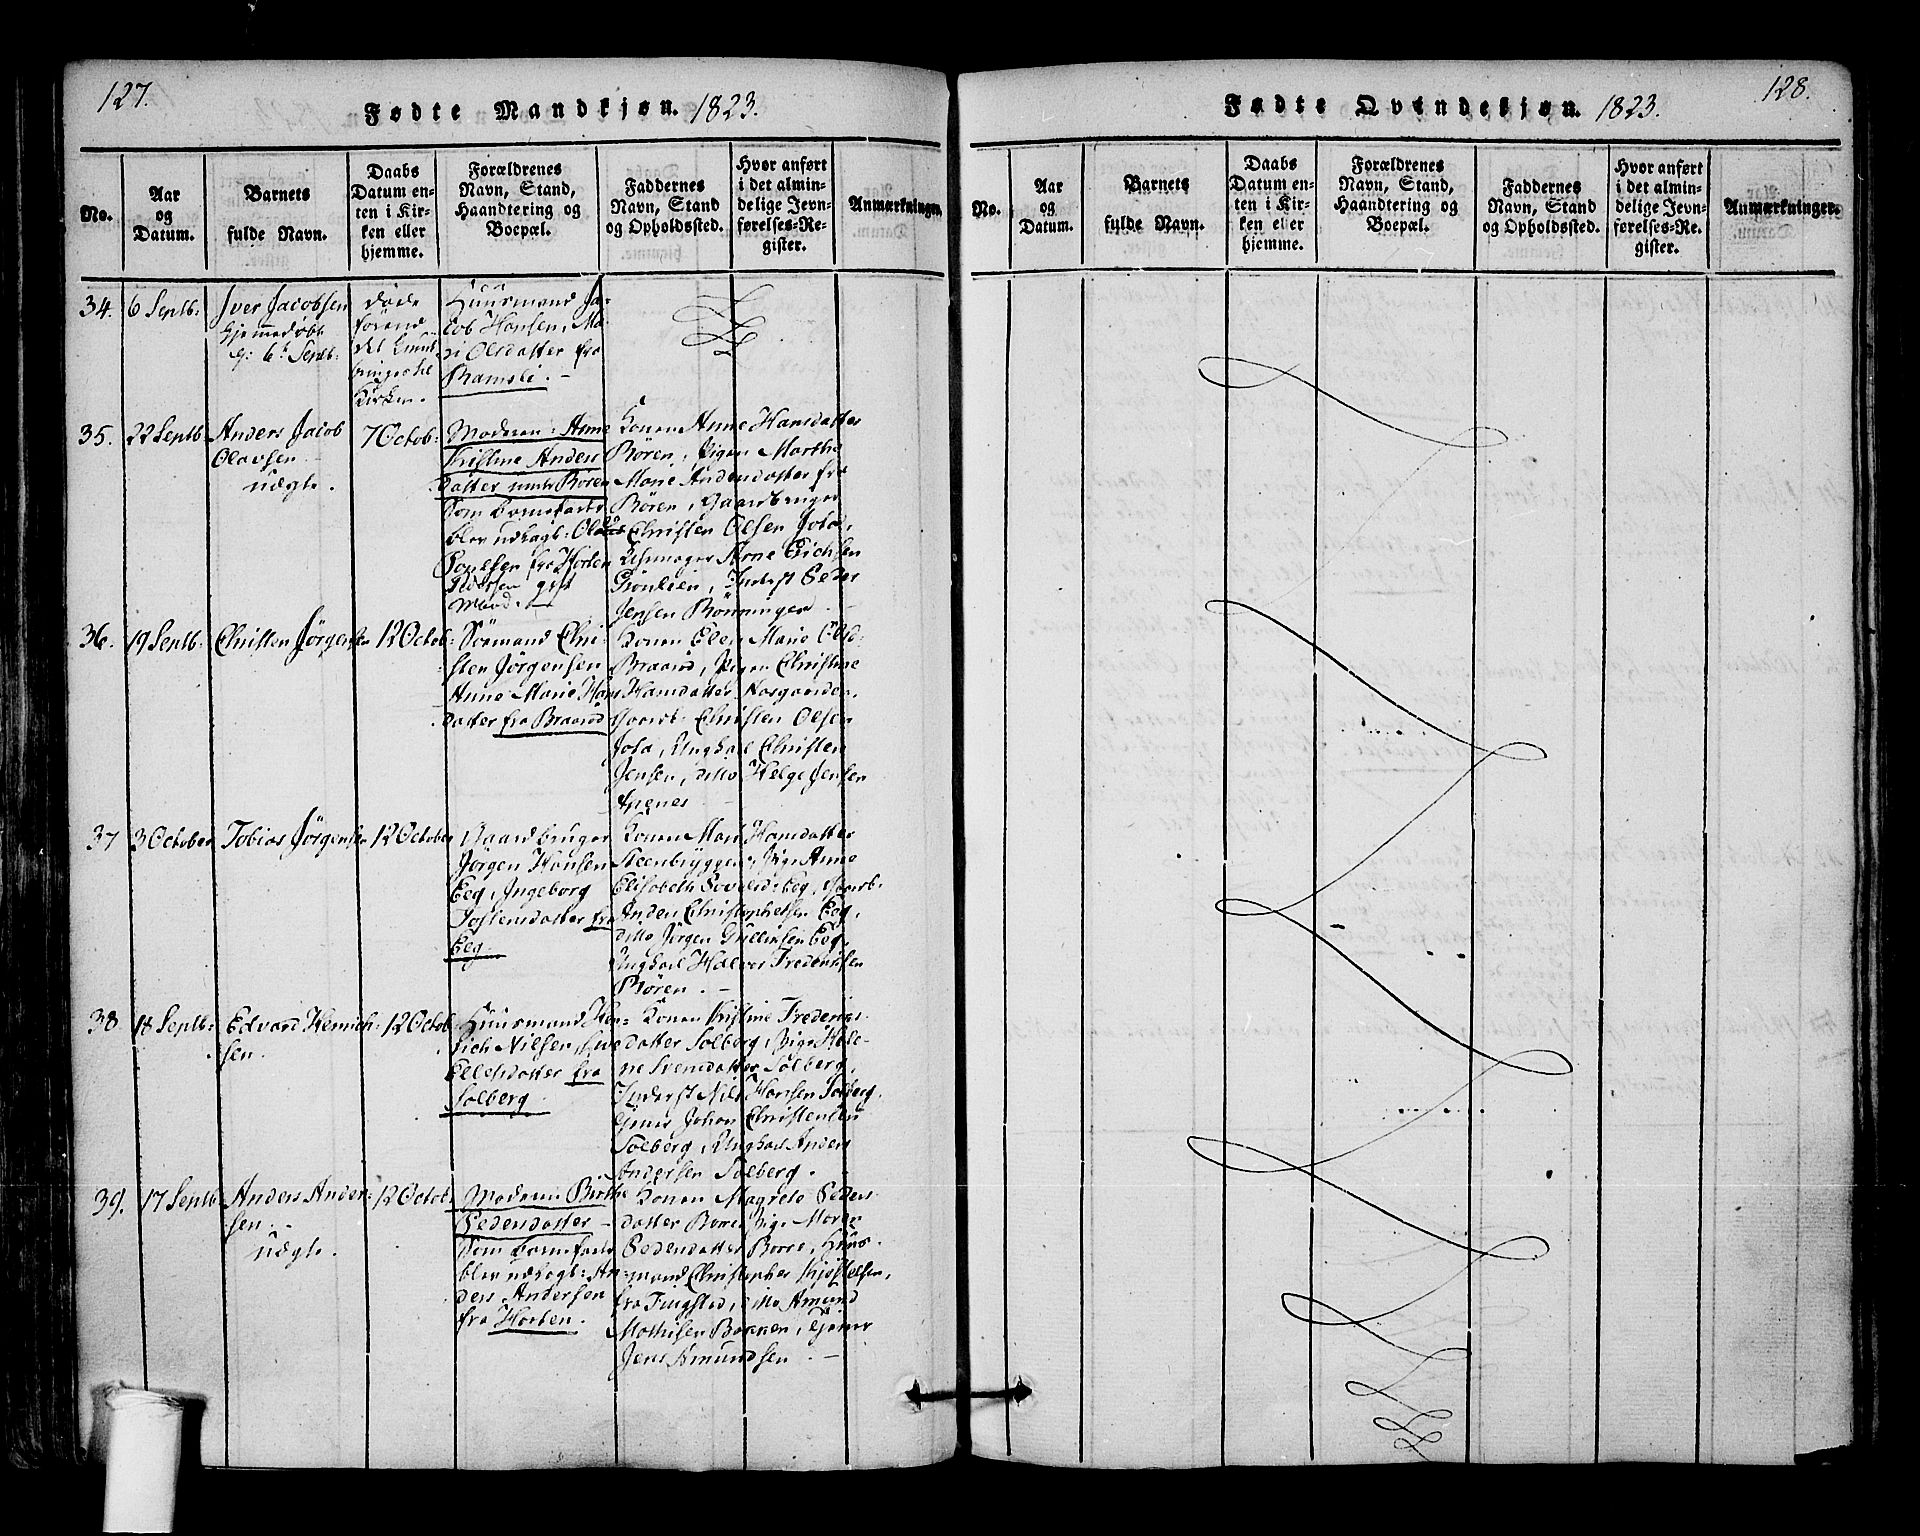 127.
Fødte Mandkjøn. 1823.
No.
Aar
og
Datum.
Barnets
fulde Navn.
Daabs
Datum en-
ten i Kir-
ken eller
hjemme.
Forældrenes
Navn, Stand,
Haandtering og
Boepæl.
Faddernes
Navn, Stand
og Opholdssted.
Hvor anført
i det almin-
delige Jevn-
førelses-Re-
gister.
Anmærkninger.
34.
6 Septb:
Iver Jacobsen
hjemmedøbt
6te Septb:
døde
førend
det kunde
bringes til
Kirken.
Huusmand Ja-
cob Hansen, Ma-
ri Olsdatter fra
Ramsli. -
35.
22 Septb
Anders Jacob
Olavsen
uægte.
7 Octob:
Moderen: Anne
Kristine Anders
datter Børen
som barnefader
blev udlagt: Ol
Poulsen fra Horten
gift
Mand. -
Konen Anne Hansdatter
Børen, Pigen Marthe
Marie Andersdatter fra
Børen, Gaardbruger
Christen Olsen Jola,
Arne Erichsen
Grønlien, Inderst Peder
Jensen Rønningen -
36.
19 Septb:
Christen Jörgensen
12 Octob:
Sömand Chri-
sten Jörgensen
Anne Marie Hans
datter fra Braarød
Konen Elen Marie Olsd:
Braarød, Pigen Christine
Hansdatter Aasgaarden
Gaardb: Christen Olsen
Jola, Ungkarl Christen
Jensen, ditto Helge Jensen
37
3 October
Tobias Jörgensen
12 October
Gaardbruger
Jörgen Hansen
Eeg, Ingeborg
Tostensdatter fra
Eeg.
Konen Mari Hansdatter
Steenbryggen, Pige Anne
Elisabeth Eeg, Gaardb.
Anders Christophersen Eeg,
ditto Jörgen Gulliksen Eeg,
Ungkarl Halvor Frederiksen
Børen. -
38
18 Septb:
Edvard Henrich-
sen.
12 Octob:
Huusmand Hen-
rich Nilsen,
Ellefsdatter fra
Solberg.
Konen Kristine Frederiks-
datter Solberg, Pige Hele-
ne Svensdatter Solberg,
Inderst Nils Hansen Solberg,
Johan Christensen
Solberg, Ungkarl Anders
Andersen Solberg.
39.
17 Septb
Anders Ander-
sen. -
uægte.
12 Octob:
Moderen Birthe
Pedersdatter -
som barnefader
blev udlagt: An-
ders Andersen
fra Horten.
Konen Magrete Peders
datter Borre Pige Maren
Pedersdatter Borre, Huus-
mand Christopher Kjöstelsen,
fra Fingstad, ditto Amund
Mathisen Bakken,
Jens Amundsen. -
128.
Fødte Qvindekjøn. 1823.
No.
Aar
og
Datum.
Barnets
fulde Navn.
Daabs
Datum en-
ten i Kir-
ken eller
hjemme.
Forældrenes
Navn, Stand,
Haandtering og
Boepæl.
Faddernes
Navn, Stand
og Opholdssted.
Hvor anført
i det almin-
delige Jevn-
førelses-Re-
gister.
Anmærkninger.